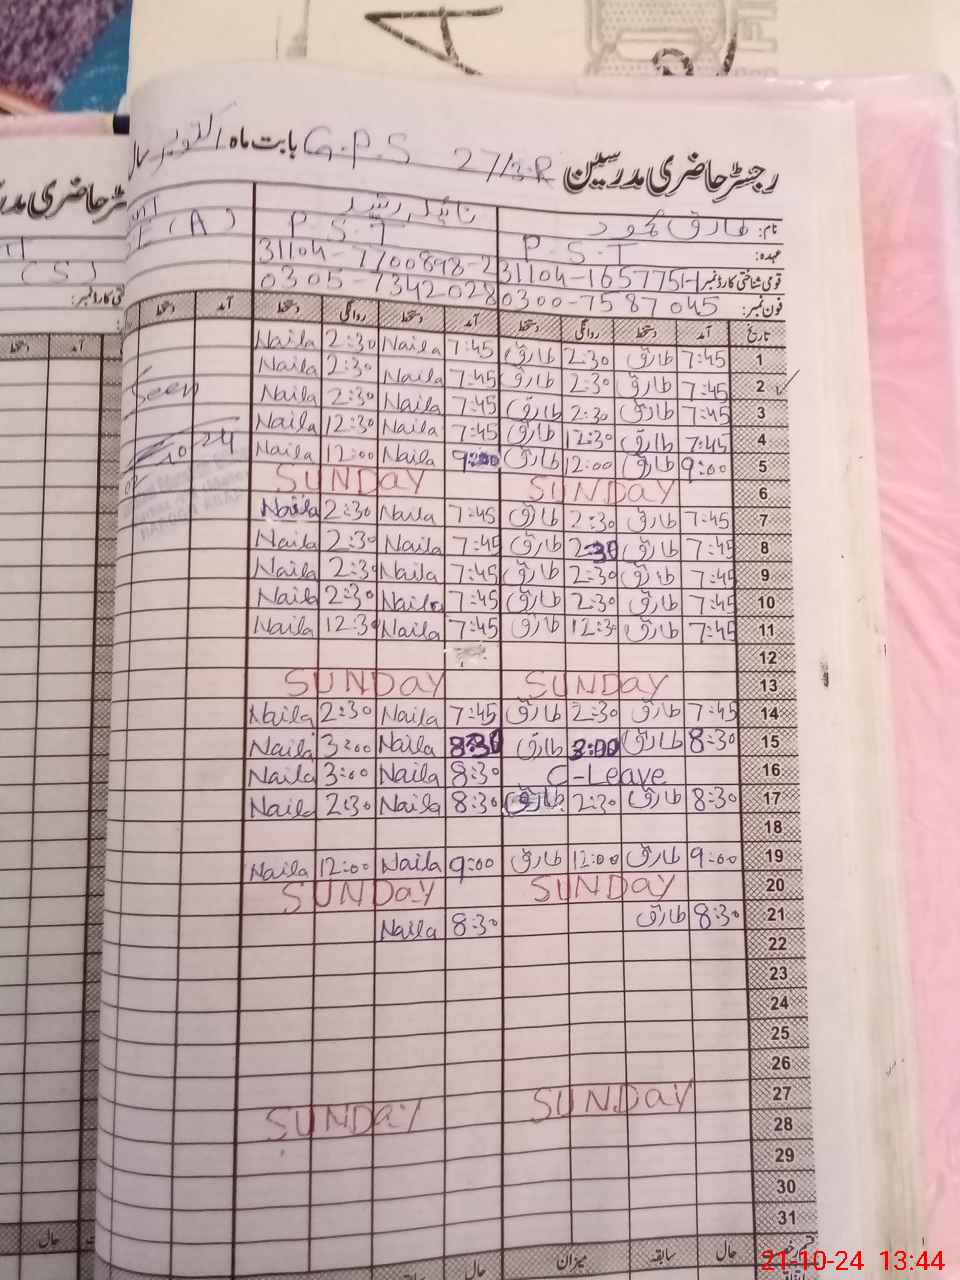 رجسٹر حاضری مدرسین 27/3.R G.P.S بابت ماہ اکتوبر سال
نام: طارق محمود نائلہ رشید
عہدہ: P.S.T P.S.T (A)
قومی شناختی کارڈ نمبر 31104-1657751-1 31104-7700898-2
فون نمبر: 0300-7587045 0305-7342028
تاریخ آمد دستخط روانگی دستخط آمد دستخط روانگی دستخط آمد دستخط
1 7:45 طارق 2:30 طارق 7:45 Naila 2:30 Naila
2 7:45 طارق 2:30 طارق 7:45 Naila 2:30 Naila
3 7:45 طارق 2:30 طارق 7:45 Naila 2:30 Naila Seen
4 7:45 طارق 12:30 طارق 7:45 Naila 12:30 Naila
5 9:00 طارق 12:00 طارق 9:00 Naila 12:00 Naila 10 24
6 SUNDAY SUNDAY
7 7:45 طارق 2:30 طارق 7:45 Naila 2:30 Naila
8 7:45 طارق 2:30 طارق 7:45 Naila 2:30 Naila
9 7:45 طارق 2:30 طارق 7:45 Naila 2:30 Naila
10 7:45 طارق 2:30 طارق 7:45 Naila 2:30 Naila
11 7:45 طارق 12:30 طارق 7:45 Naila 12:30 Naila
12
13 SUNDAY SUNDAY
14 7:45 طارق 2:30 طارق 7:45 Naila 2:30 Naila
15 8:30 طارق 3:00 طارق 8:30 Naila 3:00 Naila
16 C-Leave 8:30 Naila 3:00 Naila
17 8:30 طارق 2:30 طارق 8:30 Naila 2:30 Naila
18
19 9:00 طارق 12:00 طارق 9:00 Naila 12:00 Naila
20 SUNDAY SUNDAY
21 8:30 طارق 8:30 Naila
22
23
24
25
26
27 SUNDAY SUNDAY
28
29
30
31
حال سابقہ میزان حال
21-10-24 13:44